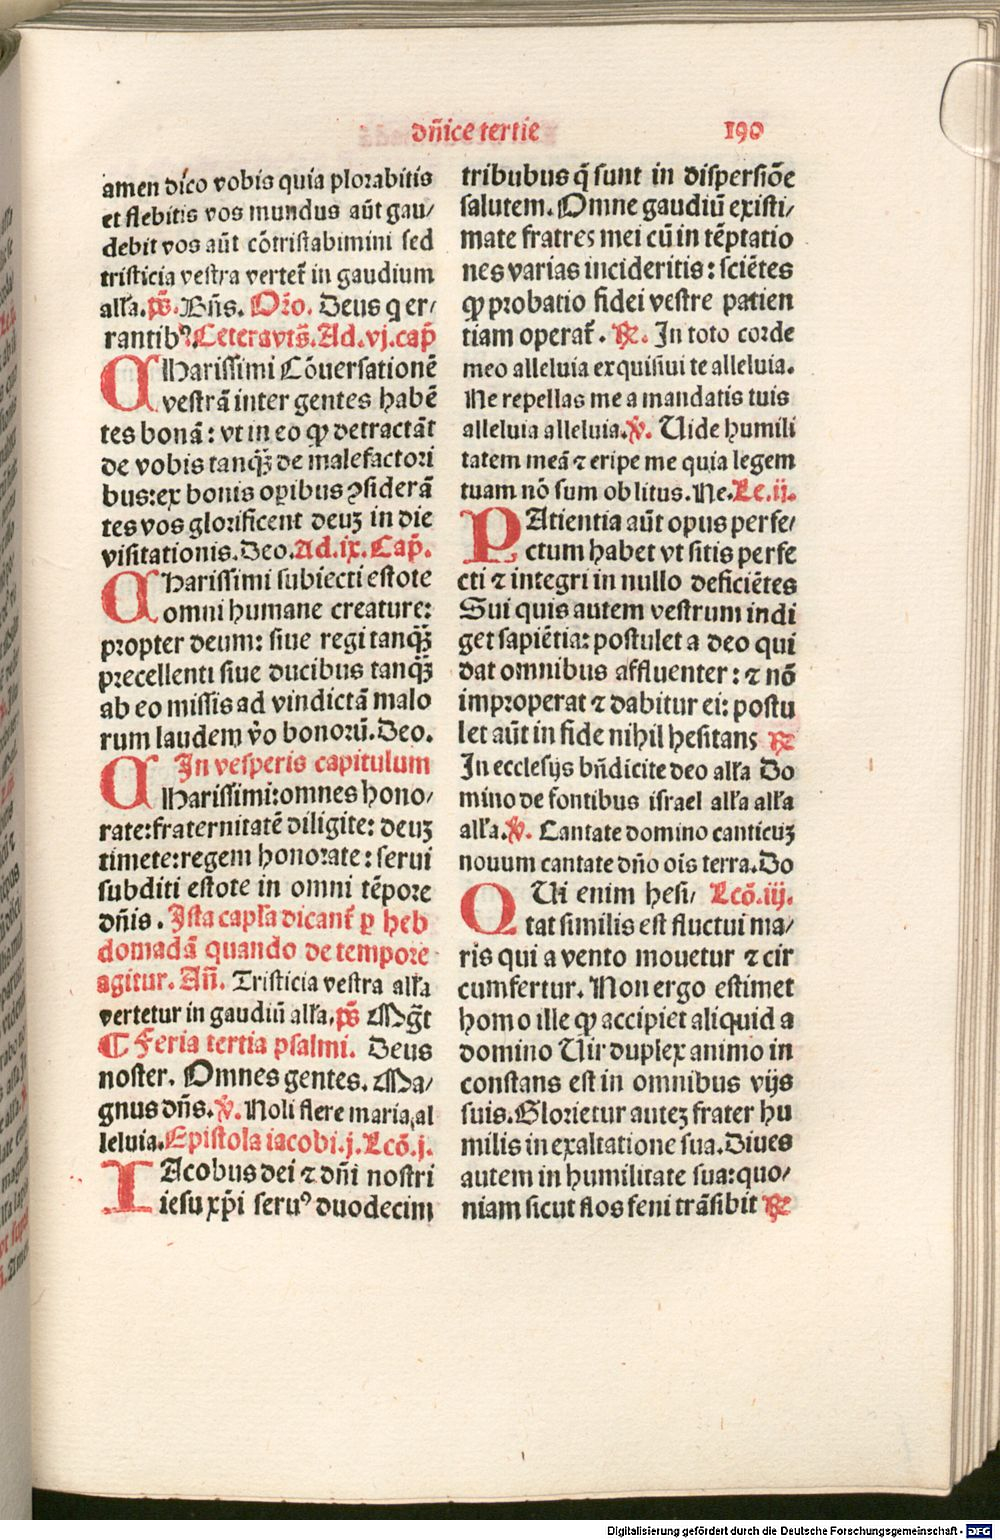 dñice tertie 190
amen dico vobis quia plorabitis
et flebitis vos mundus aūt gau/
debit vos aūt cōtristabimini sed
tristicia vestra vertet̄ in gaudium
alł'a. ps̄. Bn̄s. Or̄o. Deus q er-
rantibꝰ. Cetera vts̄. Ad. vj. cap̄
CHarissimi Cōuersationē
vestrā inter gentes habē
tes bonā: vt in eo ꝙ detractāt
de vobis tanqꝫ̄ de malefactori
bus: ex bonis opibus ꝯsiderā
tes vos glorificent deuꝫ in die
visitationis. Deo. Ad. ix. Cap̄.
CHarissimi subiecti estote
omni humane creature:
propter deum: siue regi tanqꝫ̄
precellenti siue ducibus tanqꝫ̄
ab eo missis ad vindictā malo
rum laudem v̄o bonorū. Deo.
In vesperis capitulum
CHarissimi: omnes hono/
rate: fraternitatē diligite: deuꝫ
timete: regem honorate: serui
subditi estote in omni tēpore
dn̄is. Ista capl'a dicant̄ ꝑ heb
domadā quando de tempore
agitur. An̄. Tristicia vestra alł'a
vertetur in gaudiū alł'a. ps̄ Mḡt
¶ Feria tertia psalmi. Deus
noster. Omnes gentes. Ma/
gnus dn̄s. ℣. Noli flere maria, al
leluia. Epistola iacobi. j. Lcō. j.
IAcobus dei ⁊ dn̄i nostri
iesu xp̄i seruꝰ duodecim
tribubus q̄ sunt in dispersiōe
salutem. Omne gaudiū existi/
mate fratres mei cū in tēptatio
nes varias incideritis: sciētes
ꝙ probatio fidei vestre patien
tiam operat̄. ℟. In toto corde
meo alleluia exquisiui te alleluia.
Ne repellas me a mandatis tuis
alleluia alleluia. ℣. Uide humili
tatem meā ⁊ eripe me quia legem
tuam nō sum oblitus. Ne. Lc. ij.
PAtientia aūt opus perfe/
ctum habet vt sitis perfe
cti ⁊ integri in nullo deficiētes
Sui quis autem vestrum indi
get sapiētia: postulet a deo qui
dat omnibus affluenter: ⁊ nō
improperat ⁊ dabitur ei: postu
let aūt in fide nihil hesitans ℟
In ecclesijs bn̄dicite deo alł'a Do
mino de fontibus israel alł'a alł'a
alł'a. ℣. Cantate domino canticuꝫ
nouum cantate dn̄o ois terra. Do
QUi enim hesi/ Lcō. iij.
tat similis est fluctui ma/
ris qui a vento mouetur ⁊ cir
cumfertur. Non ergo estimet
homo ille ꝙ accipiet aliquid a
domino Uir duplex animo in
constans est in omnibus vijs
suis. Glorietur auteꝫ frater hu
milis in exaltatione sua. Diues
autem in humilitate sua: quo/
niam sicut flos feni trāsibit ℟
Digitalisierung gefördert durch die Deutsche Forschungsgemeinschaft - DFG